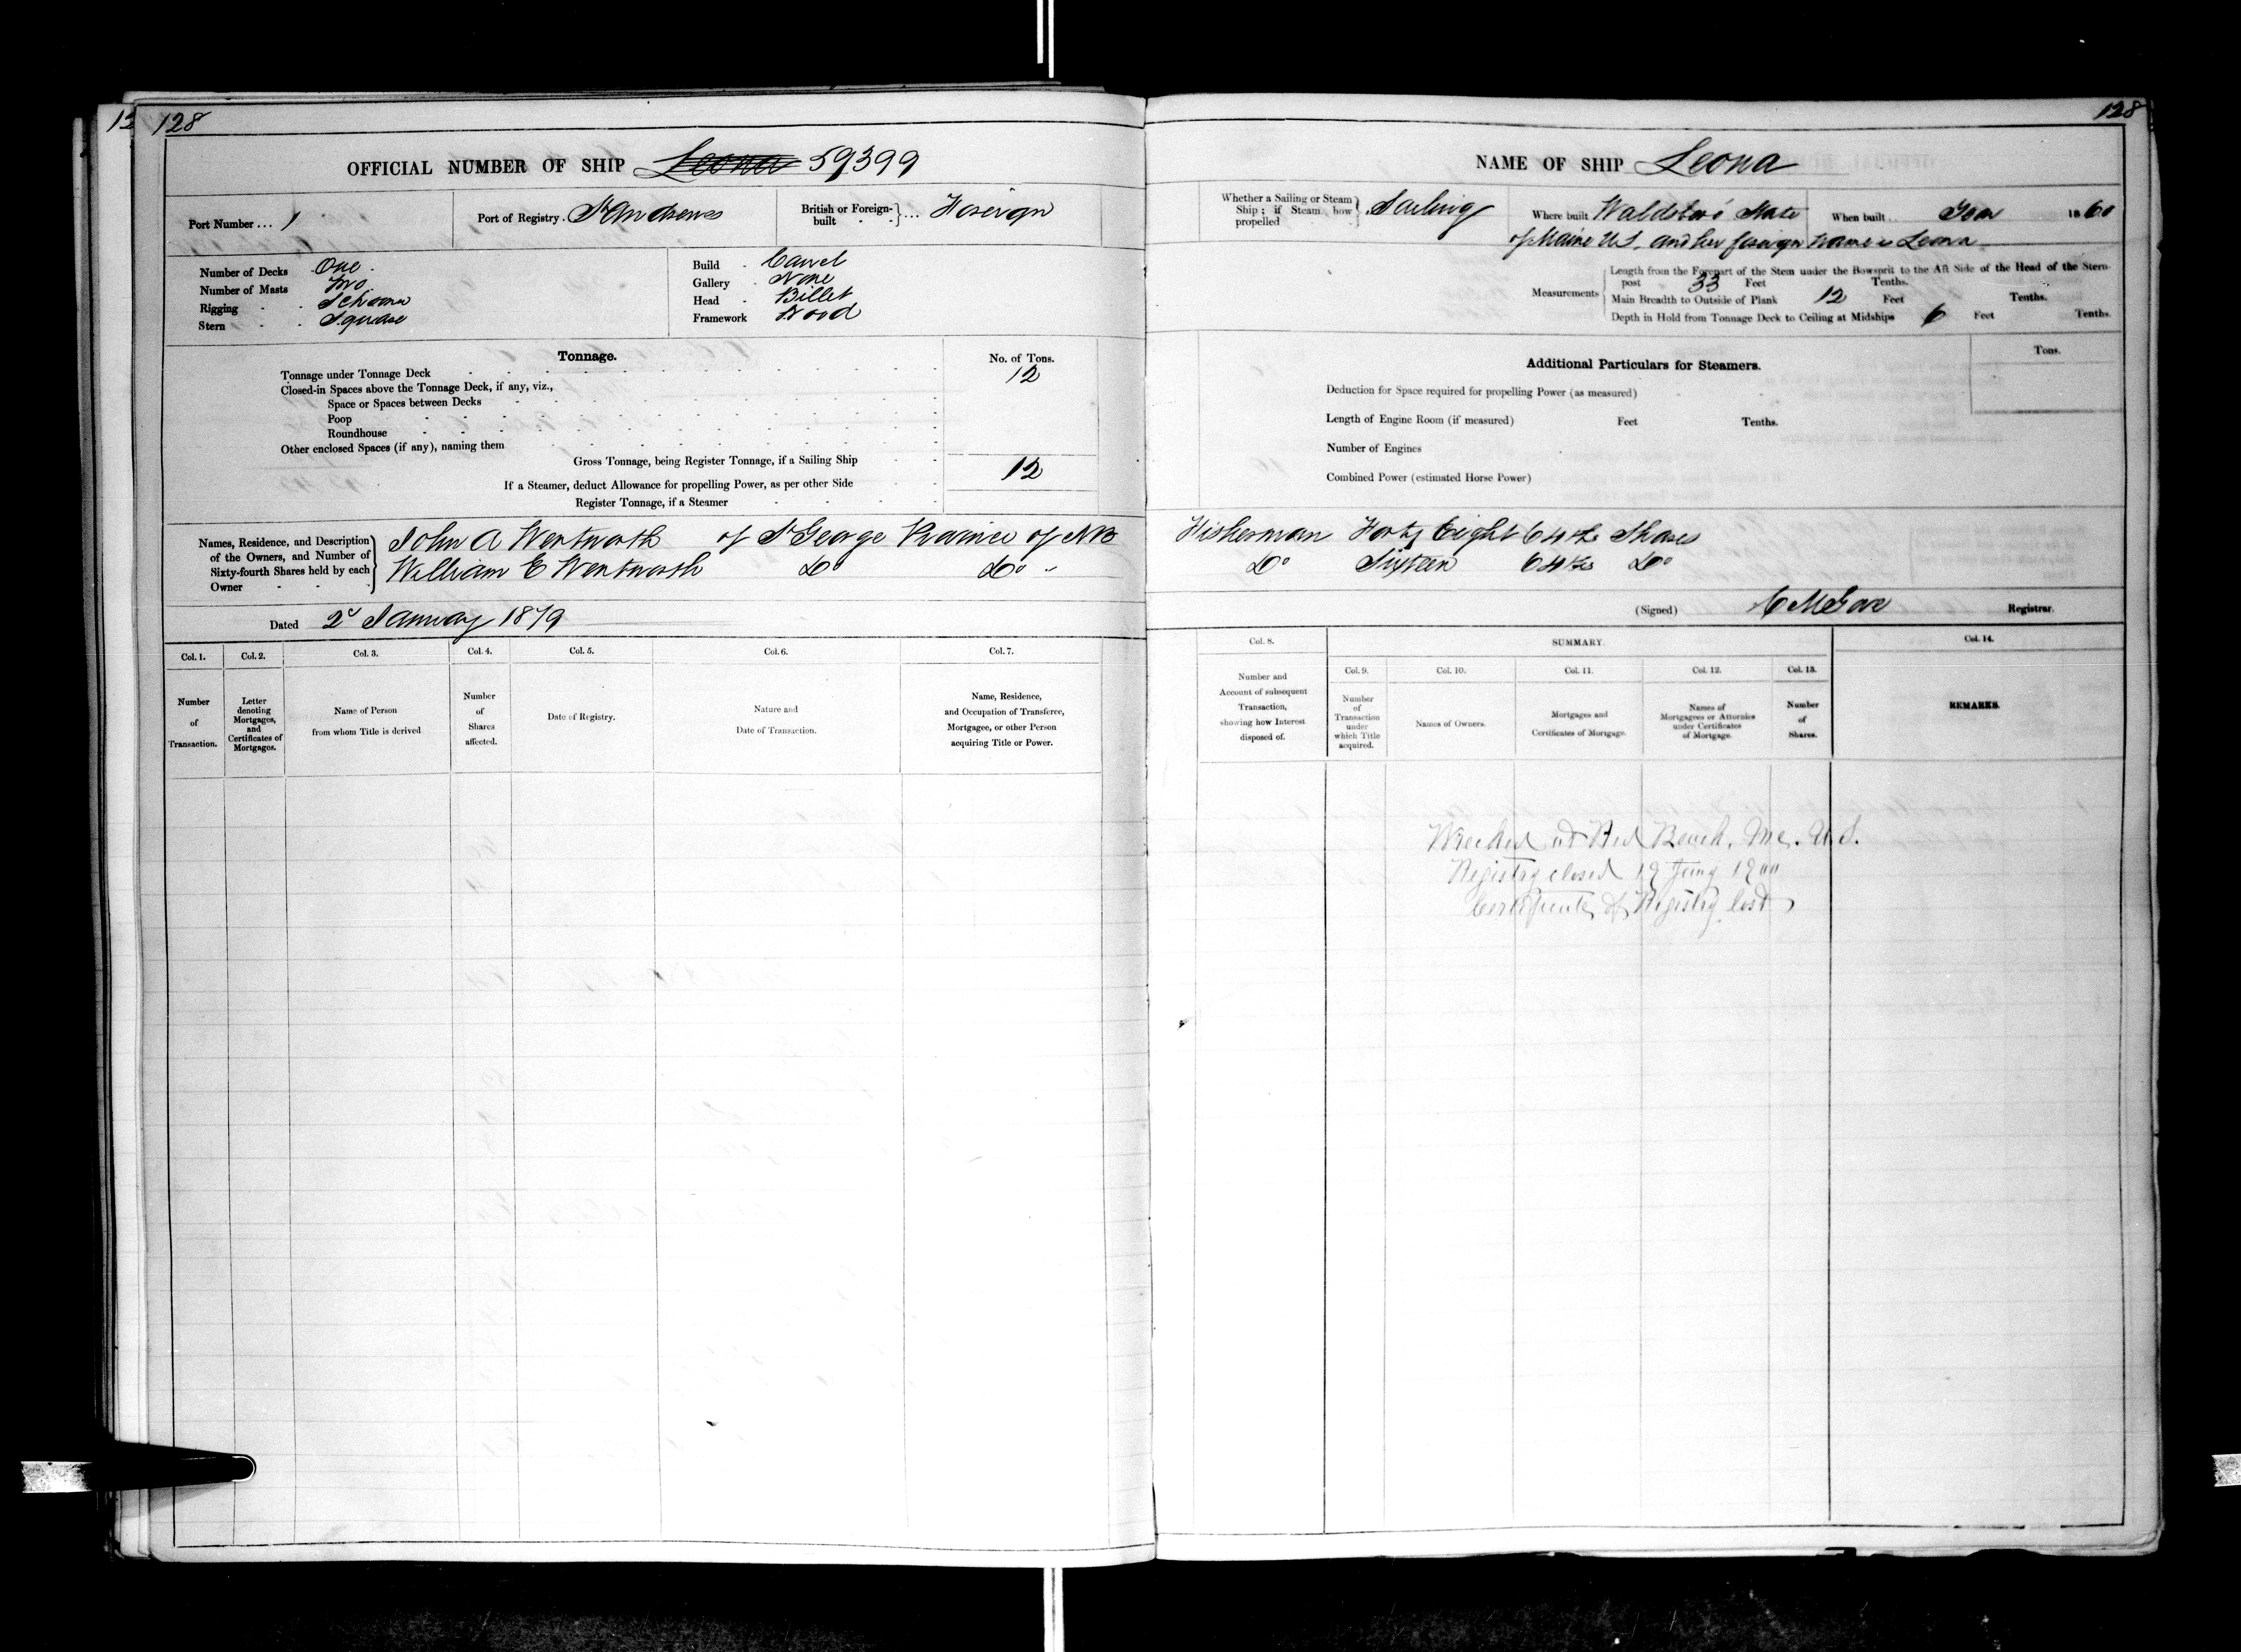 128
OFFICIAL NUMBER OF SHIP Leona 59399
Port Number ... 1
Port of Registry . St Andrews
British or Foreign-built } ... Foreign
Number of Decks One
Number of Masts Two
Rigging - - Schooner
Stern - - Square
Build - Carvel
Gallery - None
Head - Billet
Framework Wood
Tonnage.
No. of Tons.
Tonnage under Tonnage Deck 12
Closed-in Spaces above the Tonnage Deck, if any, viz.,
Space or Spaces between Decks
Poop
Roundhouse
Other enclosed Spaces (if any), naming them
Gross Tonnage, being Register Tonnage, if a Sailing Ship 12
If a Steamer, deduct Allowance for propelling Power, as per other Side
Register Tonnage, if a Steamer
Names, Residence, and Description
of the Owners, and Number of
Sixty-fourth Shares held by each
Owner
John A Wentworth of St George Province of NB
William E Wentworth Do Do
Dated 2d January 1879
Col. 1. Col. 2. Col. 3. Col. 4. Col. 5. Col. 6. Col. 7.
Number
of
Transaction.
Letter
denoting
Mortgages,
and
Certificates of
Mortgages.
Name of Person
from whom Title is derived
Number
of
Shares
affected.
Date of Registry.
Nature and
Date of Transaction.
Name, Residence,
and Occupation of Transferee,
Mortgagee, or other Person
acquiring Title or Power.
128
NAME OF SHIP Leona
Whether a Sailing or Steam
Ship; if Steam how
propelled
Sailing
Where built Waldoboro' State
of Maine U.S. and her foreign name is Leona
When built .. Year 1860
Measurements
Length from the Forepart of the Stem under the Bowsprit to the Aft Side of the Head of the Stern-
post 33 Feet Tenths.
Main Breadth to Outside of Plank 12 Feet Tenths.
Depth in Hold from Tonnage Deck to Ceiling at Midships 6 Feet Tenths.
Additional Particulars for Steamers.
Tons.
Deduction for Space required for propelling Power (as measured)
Length of Engine Room (if measured) Feet Tenths.
Number of Engines
Combined Power (estimated Horse Power)
Fisherman Forty Eight 64ths Shares
Do Sixteen 64ths Do
(Signed) C M Gove Registrar.
Col. 8.
SUMMARY.
Col. 14.
Col. 9. Col. 10. Col. 11. Col. 12. Col. 13.
Number and
Account of subsequent
Transaction,
showing how Interest
disposed of.
Number
of
Transaction
under
which Title
acquired.
Names of Owners.
Mortgages and
Certificates of Mortgage.
Names of
Mortgagees or Attornies
under Certificates
of Mortgage.
Number
of
Shares.
REMARKS.
Wrecked at Red Beach, Me. U.S.
Registry closed 19 1900
Certificate of Registry lost